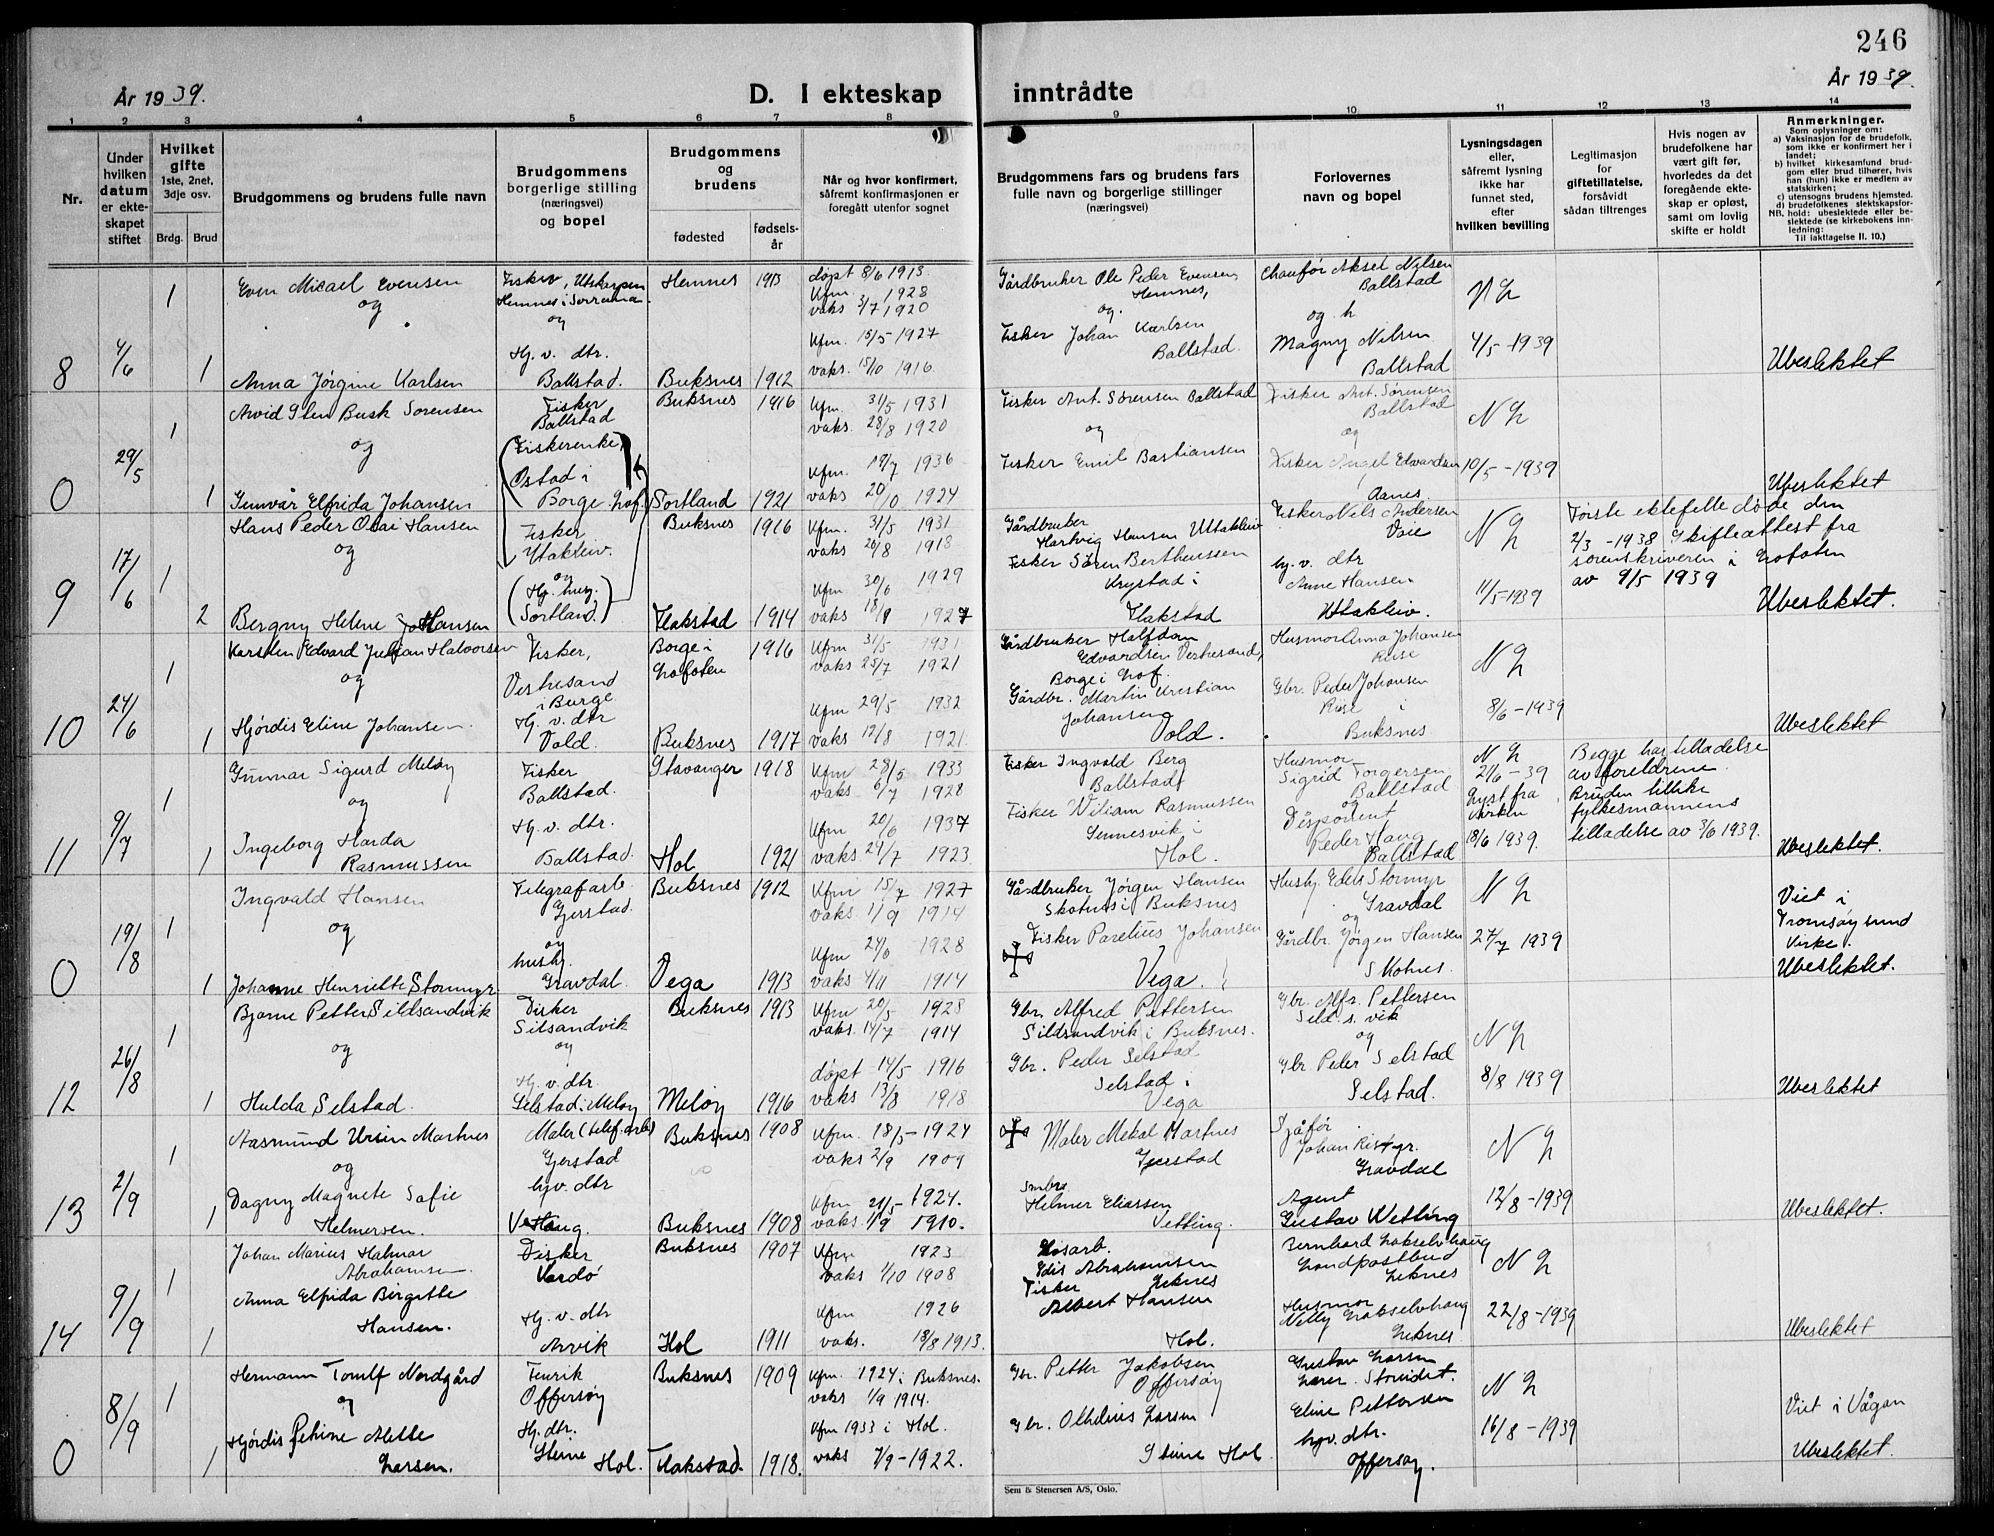 246
År 1939.
D. I ekteskap inntrådte
År 1939.
1 2 3 4 5 6 7 8 9 10 11 12 13 14
Nr.
Under hvilken datum er ekteskapet stiftet
Hvilket gifte 1ste, 2net, 3dje osv.
Brdg. Brud
Brudgommens og brudens fulle navn
Brudgommens borgerlige stilling (næringsvei) og bopel
Brudgommens og brudens
fødested
fødselsår
Når og hvor konfirmert, såfremt konfirmasjonen er foregått utenfor sognet
Brudgommens fars og brudens fars fulle navn og borgerlige stillinger (næringsvei)
Forlovernes navn og bopel
Lysningsdagen eller, såfremt lysning ikke har funnet sted, efter hvilken bevilling
Legitimasjon for giftetillatelse, forsåvidt sådan tiltrenges
Hvis nogen av brudefolkene har vært gift før, hvorledes da det foregående ekteskap er opløst, samt om lovlig skifte er holdt
Anmerkninger.
Som oplysninger om:
a) Vaksinasjon for de brudefolk, som ikke er konfirmert her i landet;
b) hvilket kirkesamfund brudgom eller brud tilhører, hvis han (hun) ikke er medlem av statskirken;
c) utensogns brudens hjemsted.
d) brudefolkenes slektskapsforhold: ubeslektede eller beslektede (se kirkebokens innledning:
NB.
Til iakttagelse II. 10.)
8
4/6
1
1
Even Mikael Evensen
og
Anna Jørgine Karlsen
Fisker, Utskarpen
Hemnes i
og
Hj. v. dtr.
Ballstad.
Hemnes 1913
Buksnes 1912
døpt 8/6 1913.
Kfm. 1928
vaks 3/7 1920
Kfm. 15/5 1927
vaks. 15/10 1916
Gårdbruker Ole Peder Evensen
Hemnes,
og.
Fisker Johan Karlsen
Ballstad.
Chaufør Aksel Nilsen
Ballstad
og
Magny Nilsen
Ballstad
4/5-1939
Ubeslektet
0
29/5
1
1
Arvid Glen Busk Sørensen
og
Gunvår Elfrida Johansen
Fisker
Ballstad
(Fiskerenke,
Ostad i
Borge Lof.
Buksnes 1916
Sortland 1921
Kfm. 31/5 1931
vaks. 28/8 1920
Kfm. 19/7 1936
vaks 20/10 1924
Fisker Ant. Sørensen Ballstad
og
Fisker Emil Bastiansen
Fisker Ant. Sørensen
Ballstad
og
Fisker Angel Edvardsen
Aanes.
N L
10/5-1939
Ubeslektet
9
17/6
1
2
Hans Peder Olai Hansen
og
Bergny Helene Johansen
Fisker
Utakleiv.
og
(Hj. husg.
Sortland.)
Buksnes 1916
Flakstad 1914
Kfm. 31/5 1931
vaks 26/8 1918
Kfm 30/6 1929
vaks 18/9 1927
Gårdbruker
Hartvig Hansen Uttakleiv
Fisker Søren Bertheussen
Krystad i
Flakstad
Fisker Nels Andersen
Voie
hj. v. dtr
Anne Hansen
Uttakleiv.
N L
11/5-1939
Første ektefelle døde den
2/3-1938 Skifteattest fra
sorenskriveren i Lofoten
av 9/5 1939
Ubeslektet.
10
24/6
1
1
Karsten Edvard Julian Halvorsen
og
Hjørdis Eline Johansen
Fisker,
Vestresand
i Borge
Hj. v. dtr
Vold.
Borge i
Lofoten 1916
Buksnes 1917
Kfm 31/5 1931
vaks 25/7 1921
Kfm 29/5 1932
vaks 12/8 1921
Gårdbruker Halfdan
Edvardsen Vestresand,
Borge i Lof.
Gårdbr. Martin Kristian
Johansen
Vold.
Husmor Anna Johansen
Rise
Gbr. Peder Johansen
Rise i
Buksnes
N L
8/6-1939
Ubeslektet
11
9/7
1
1
Gunnar Sigurd Meløy
og
Ingeborg Harda
Rasmussen
Fisker
Ballstad.
Hj. v. dtr.
Ballstad.
Stavanger 1918
Hol 1921
Kfm 28/5 1933
vaks 6/7 1928
Kfm 20/6 1937
vaks 24/7 1923
Fisker Ingvald Berg
Ballstad
Fisker Wiliam Rasmussen
Sennesvik i
Hol.
Husmor
Sigrid Torgersen
Ballstad
og
Disponent
Peder Haug
Ballstad
N L
2/6-39
Lyst fra
kirken
18/6 1939.
Begge har tilladelse
av foreldrene
Bruden tillike
fylkesmannens
tilladelse av 3/6 1939.
Ubeslektet.
0
19/8
1
1
Ingvald Hansen
og
Johanne Henriette Stormyr
Telegrafarb
Gjerstad.
og
husbj.
Gravdal.
Buksnes 1912
Vega 1913
Kfm 15/7 1927
vaks 1/9 1914
Kfm 24/6 1928
vaks 4/11 1914
Gårdbruker Jørgen Hansen
Skotnes i Buksnes
Fisker Parelius Johansen
Vega.
Husbj. Edel Stormyr
Gravdal
og
Gårdbr. Jørgen Hansen
Skotnes.
N L
27/7 1939
Viet i
Tromsøysund
Kirke.
Ubeslektet.
12
26/8
1
1
Bjarne Petter Sildsandvik
og
Hulda Selstad.
Fisker
Silsandvik
og
Hj. v. dtr
Selstad i Meløy
Buksnes 1913
Meløy 1916
Kfm 20/5 1928
vaks. 14/7 1914
døpt 14/5 1916
vaks 13/8 1918
Gbr. Alfred Pettersen
Sildsandvik i Buksnes.
Gbr. Peder Selstad
Selstad i
Vega
Gbr. Alfr. Pettersen
Sild.s.vik
og
Gbr Peder Selstad
Selstad.
N L
8/8 1939
Ubeslektet
13
2/9
1
1
Aasmund Ursin Martnes
og
Dagny Magnete Sofie
Helmersen.
Maler (telef.arb)
Gjerstad
hjv. dtr
Buksnes 1908
Buksnes 1908
Kfm. 18/5-1924
vaks 2/9 1909
Kfm 21/5-1924.
vaks. 1/9 1910.
Maler Mekal Martnes
Gjerstad
Helmer Eliassen
Vetting.
Sjåfør
Johan
Gravdal
Agent
Gustav Wetting
N L
12/8-1939
Ubeslektet.
14
9/9
1
1
Johan Marius Halmar
Abrahamsen.
Anna Elfrida Birgitte
Hansen.
Fisker
Vardø
Hj. v. dtr
Arvik
Buksnes 1907
Hol 1911
Kfm 1923
vaks 1/10 1908
Kfm 1926
vaks. 18/8 1913.
Abrahamsen
Fisker Leknes
Albert Hansen
Hol.
Bernhard Lakselvhaug
Landpostbud
Leknes
Husmor
Nelly Lakselvhaug
Leknes
N L
22/8-1939
Ubeslektet
0
8/9
1
1
Hermann Tomlf Nordgård
og
Hjørdis Petrine Mette
Larsen.
Fenrik
Offersøy
Hj. dtr.
Steine Hol.
Buksnes 1909
Flakstad. 1918.
Kfm. 1924 i Buksnes.
vaks 1/9 1914.
Kfm 1933 i Hol.
vaks 7/9-1922.
Gbr. Petter Jakobsen
Offersøy
Gbr. Othelius Larsen
Steine Hol
Gustav Larsen
Eline Pettersen
hjv. dtr.
Offersøy.
N L
16/8-1939
Viet i Vågan
Ubeslektet.
Sem & Stenersen A/S, Oslo.